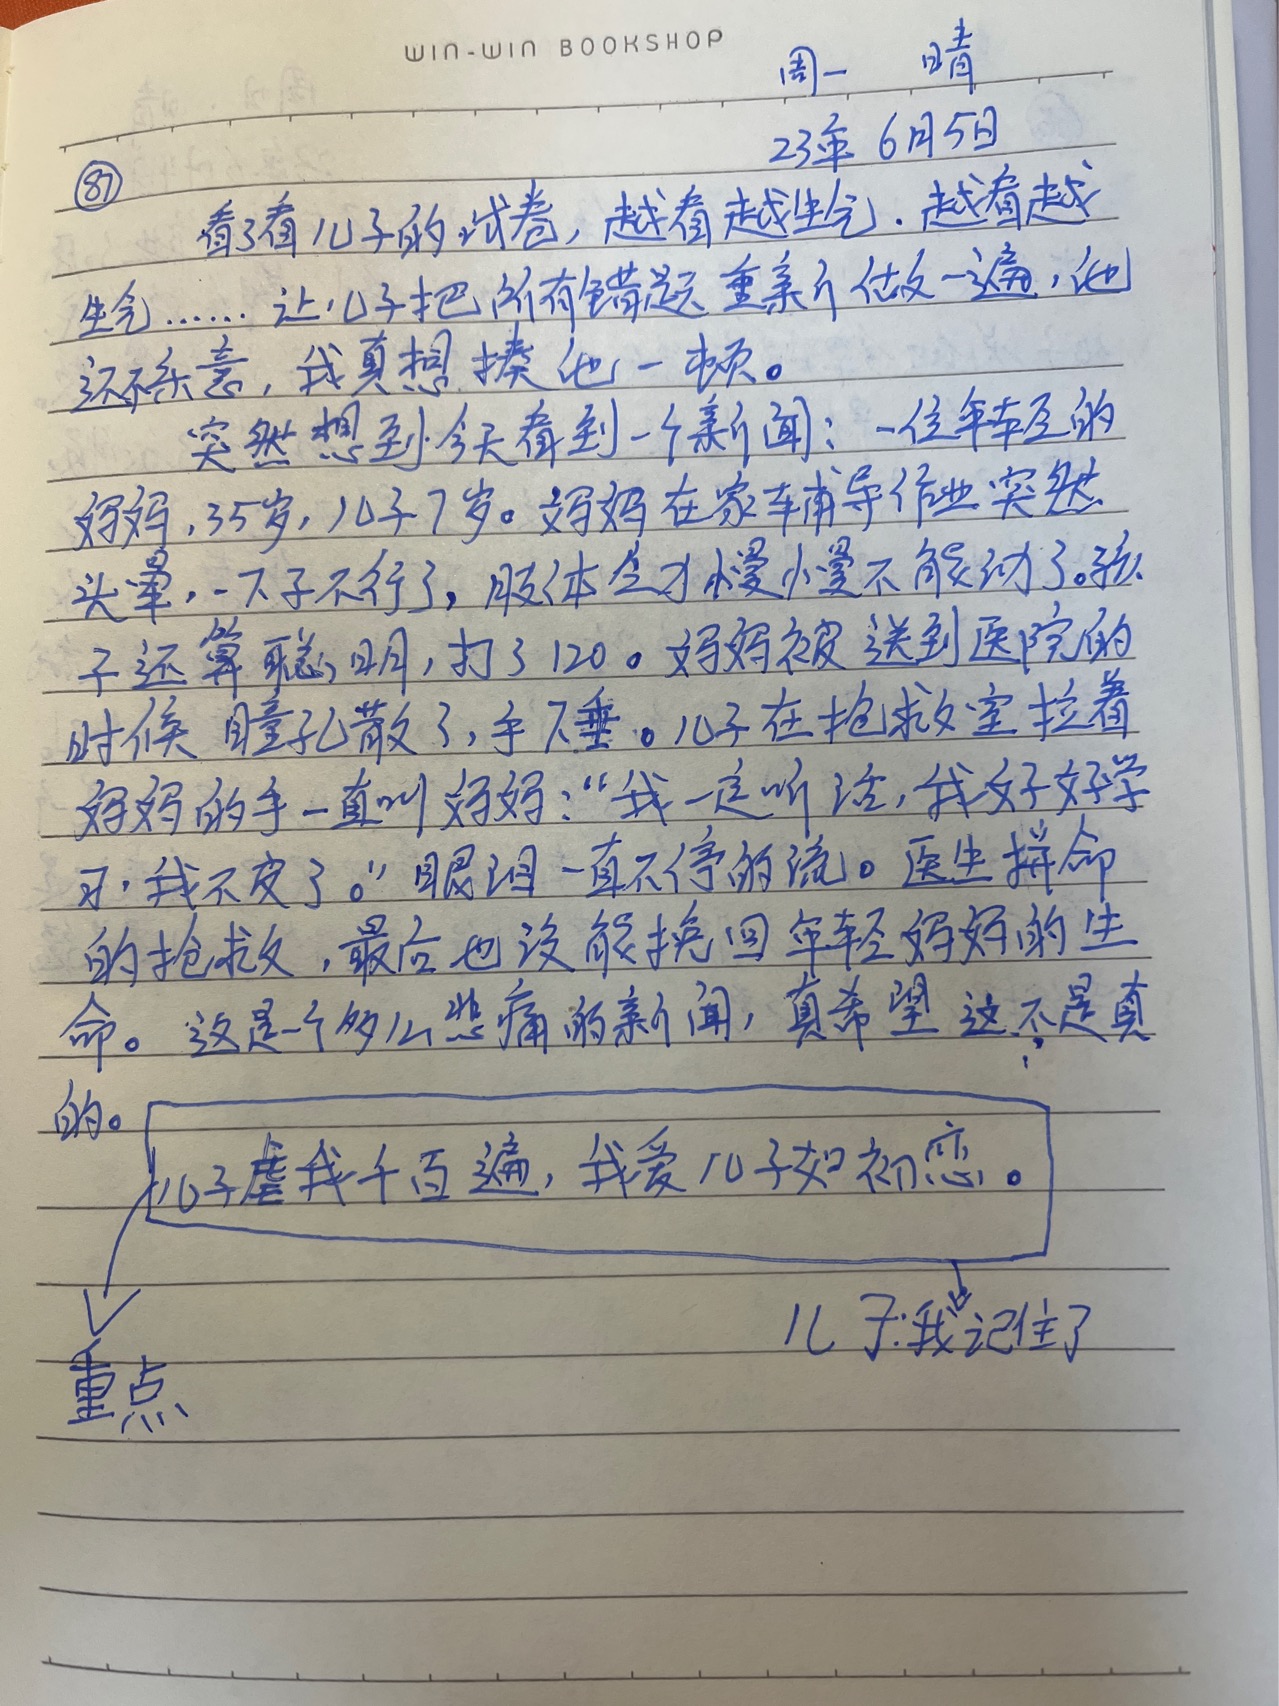 WIN-WIN BOOKSHOP
周一 晴
23年6月5日
87
看了看儿子的试卷,越看越生气.越看越
生气……让儿子把所有错题重新做一遍,他
还不乐意,我真想揍他一顿。
突然想到今天看到一个新闻:一位年轻的
妈妈,35岁,儿子7岁。妈妈在家辅导作业突然
头晕,一下子不行了,肢体全才慢慢不能动了。孩
子还算聪明,打了120。妈妈被送到医院的
时候瞳孔散了,手下垂。儿子在抢救室拉着
妈妈的手一直叫妈妈:“我一定听话,我好好学
习,我不皮了。”眼泪一直不停的流。医生拼命
的抢救,最后也没能挽回年轻妈妈的生
命。这是一个多么悲痛的新闻,真希望这不是真
的。
儿子虐我千百遍,我爱儿子如初恋。
儿子:我记住了
重点